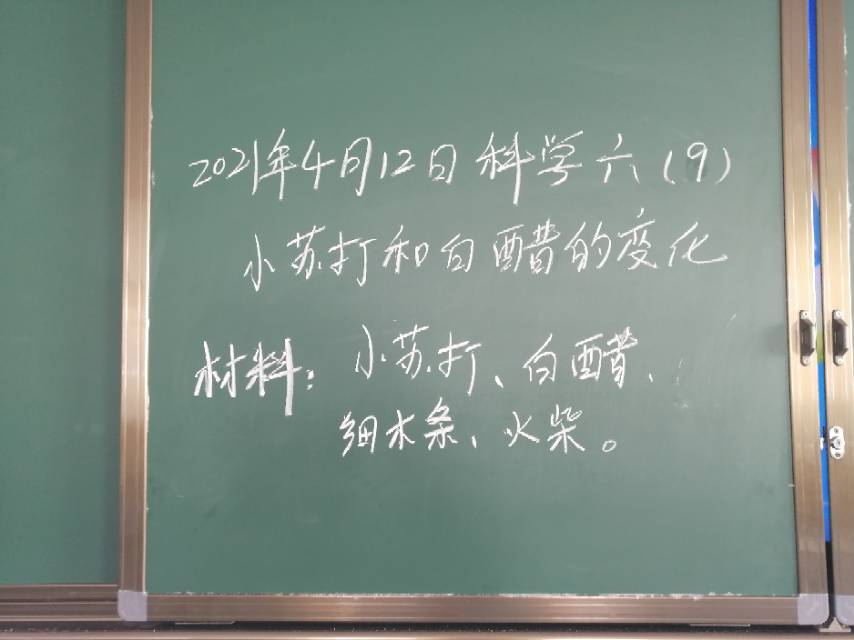 2021年4月12日科学六(9)
小苏打和白醋的变化
材料：小苏打、白醋、
细木条、火柴。